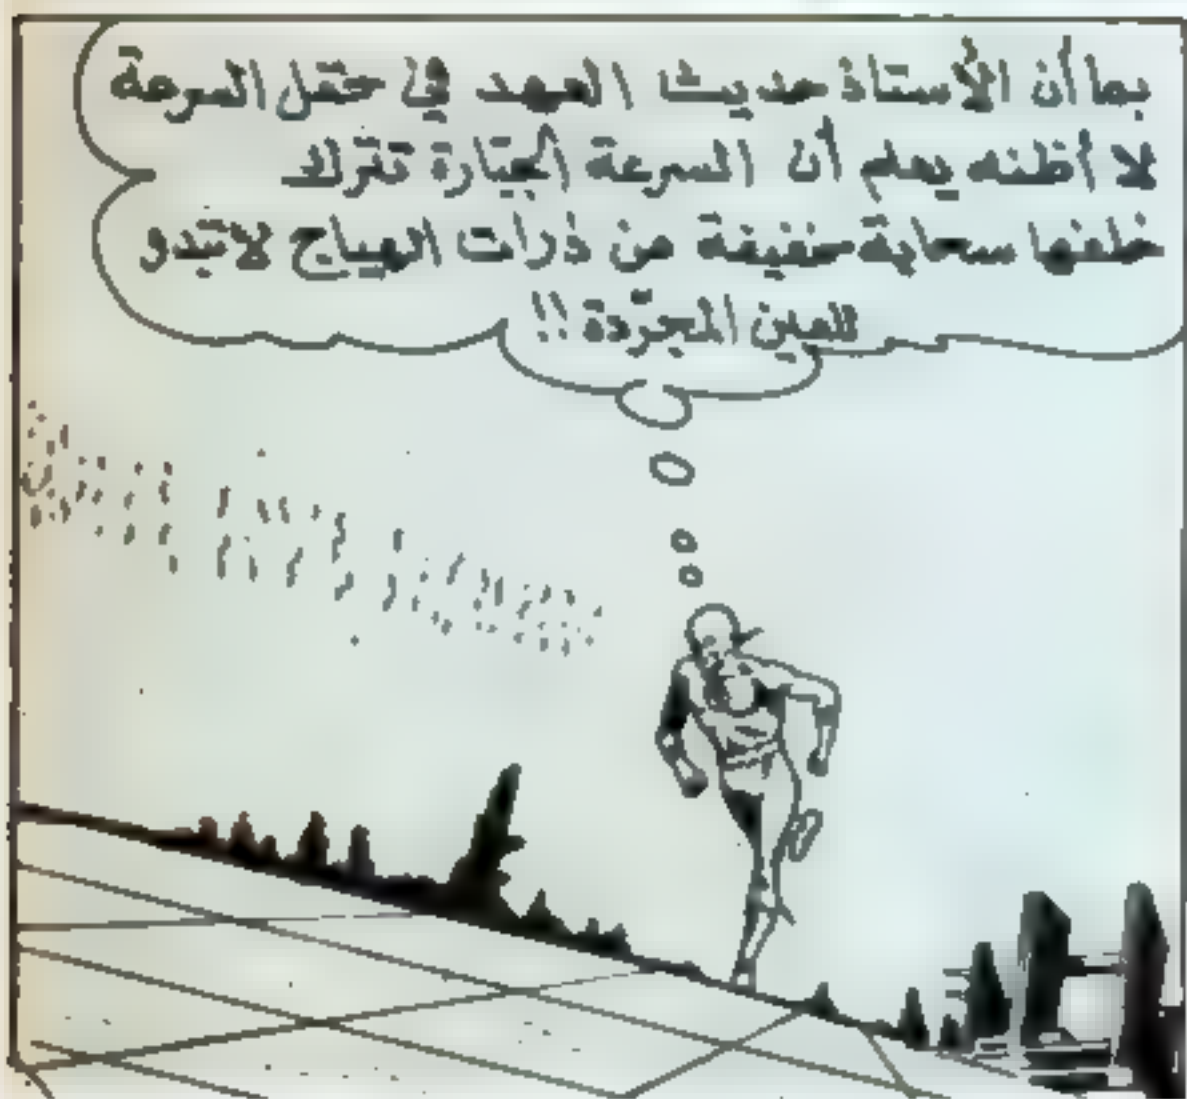 بما أن الأستاذ حديث العهد في حقل السرعة
لا أظنه يعلم أن السرعة الجبّارة تترك
خلفها سحابة خفيفة من ذرات الهياج لا تبدو
للعين المجرّدة !!